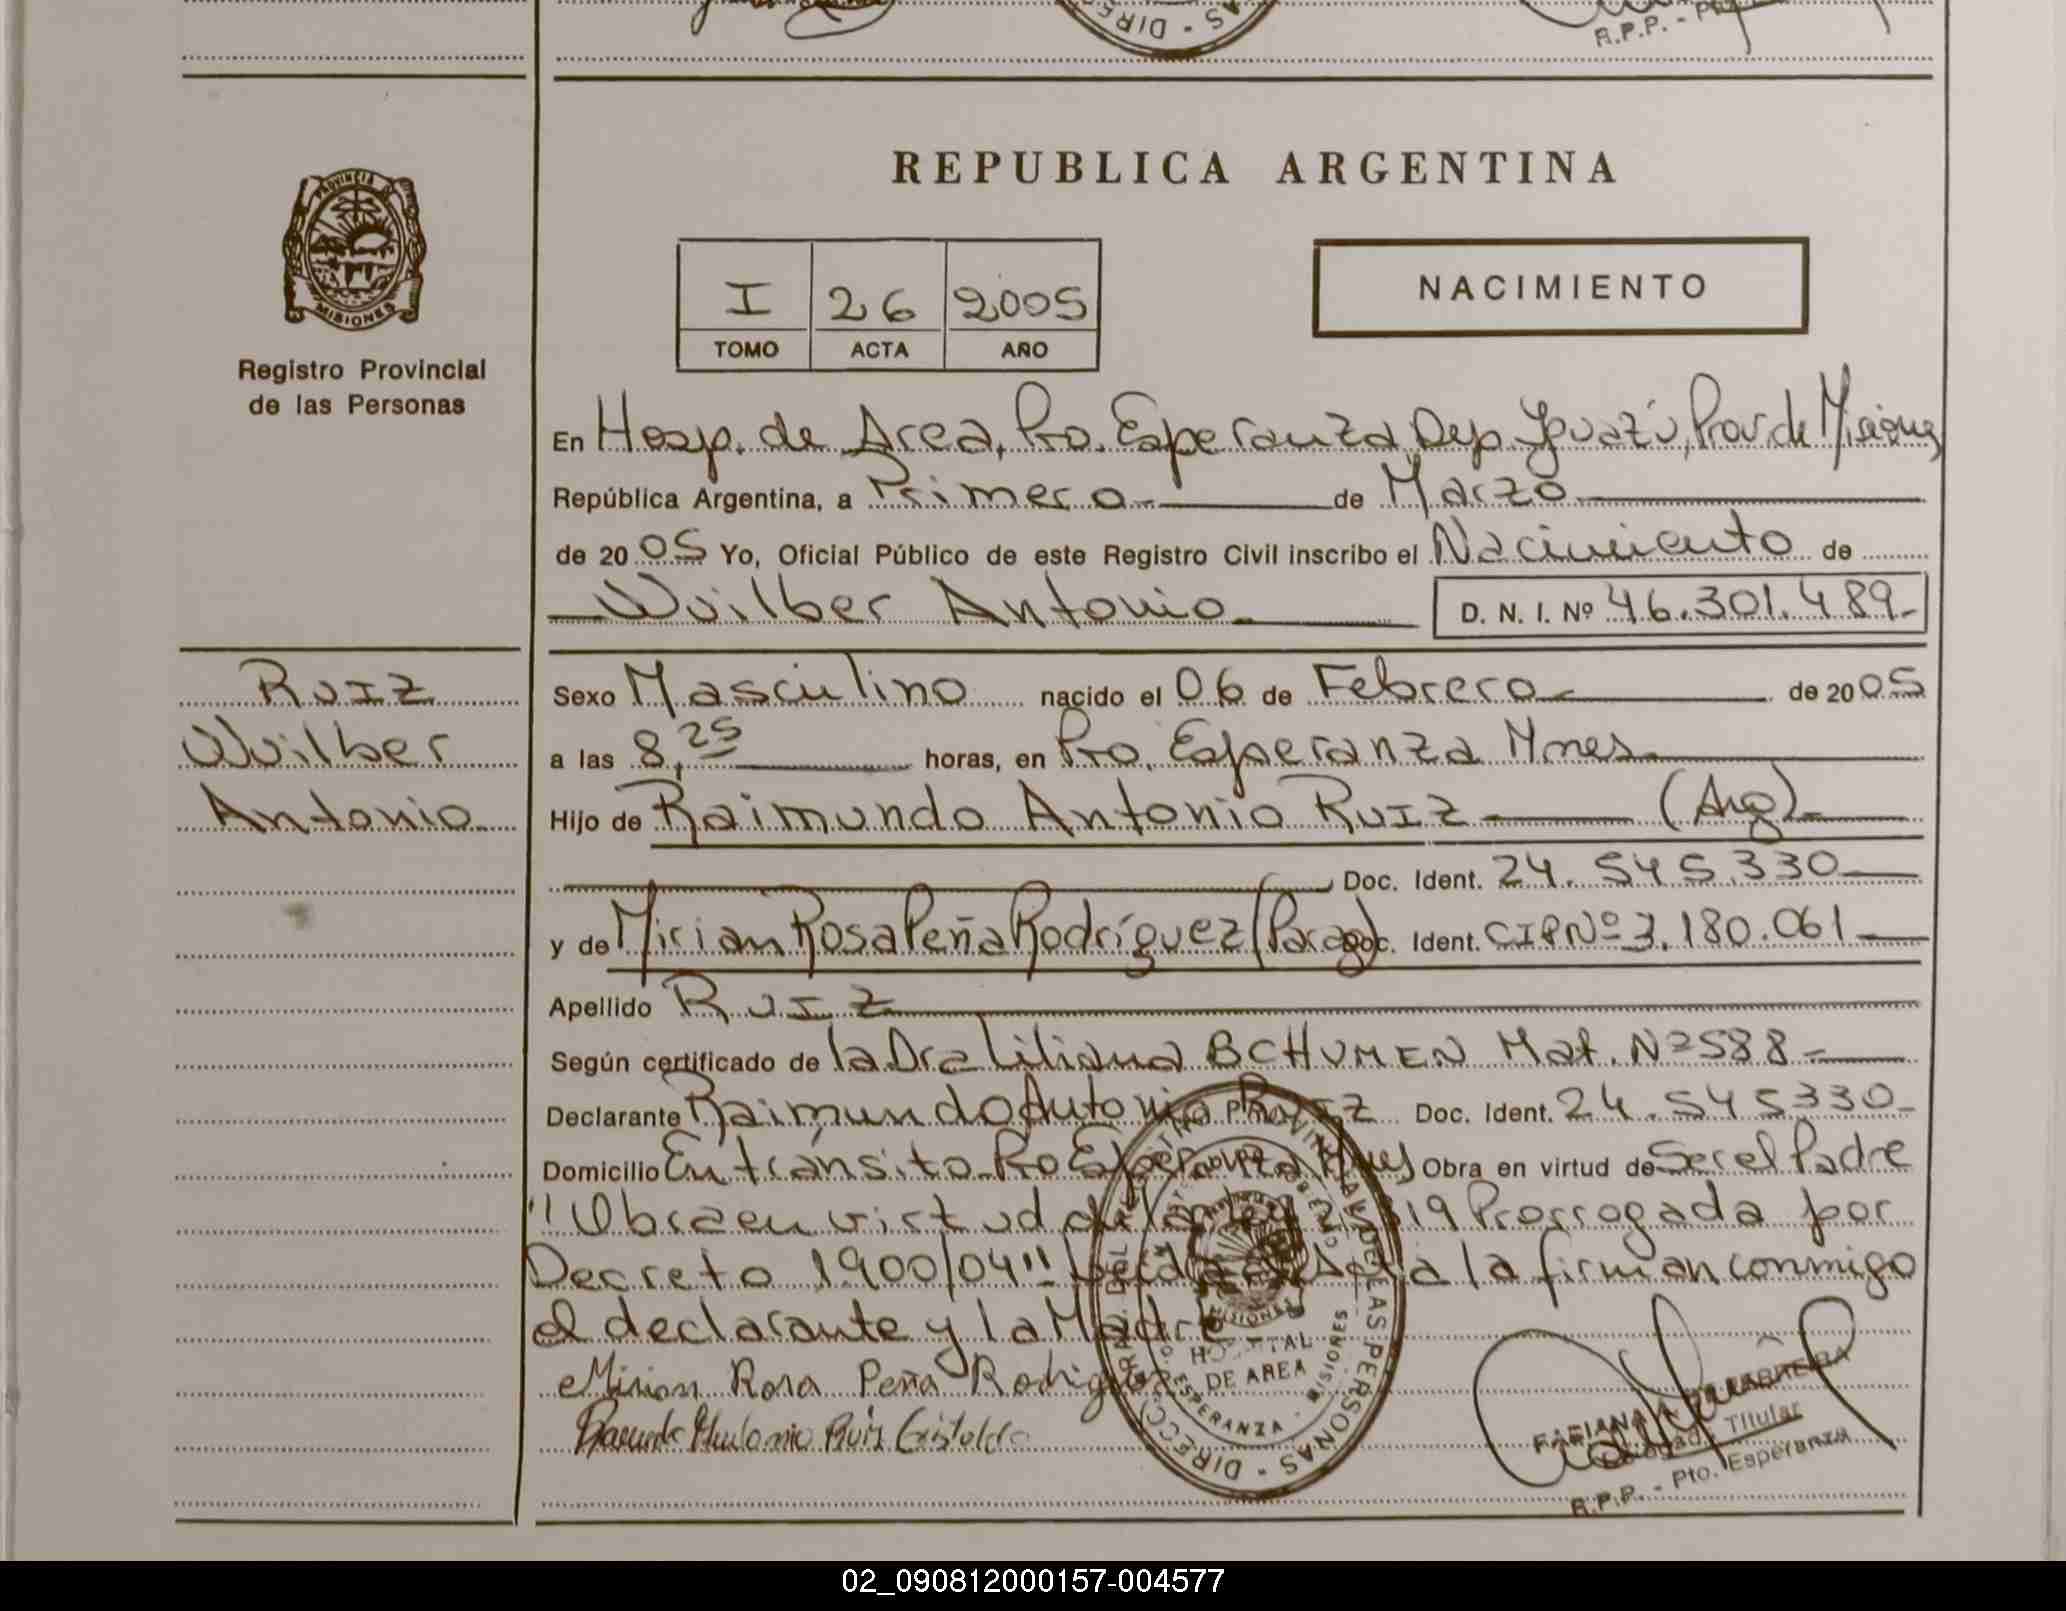 DIRE
R.P.P. - Pto
REPUBLICA ARGENTINA
PROVINCIA
MISIONES
Registro Provincial
de las Personas
NACIMIENTO
I 26 2005
TOMO ACTA AÑO
En Hosp. de Area, Pto. Esperanza, Dep. Iguazú, Prov. de Misiones
República Argentina, a Primero de Marzo
de 2005 Yo, Oficial Público de este Registro Civil inscribo el Nacimiento de
Wuilber Antonio D. N. I. Nº 46.301.489.-
Ruiz
Wuilber
Antonio
Sexo Masculino nacido el 06 de Febrero de 2005
a las 8,25 horas, en Pto. Esperanza Mnes.
Hijo de Raimundo Antonio Ruiz (Arg)
Doc. Ident. 24.545.330
y de Mirian Rosa Peña Rodríguez (Parag) Doc. Ident. CIP Nº 3.180.061
Apellido Ruiz
Según certificado de la Dra Liliana BCHUMEN Mat. Nº 588
Declarante Raimundo Antonio Ruiz Doc. Ident. 24.545330-
Domicilio En tránsito Pto Esperanza Mnes Obra en virtud de Ser el Padre
"Obra en virtud de la ley 25819 Prorrogada por
Decreto 1900/04" Leída el Acta la firman conmigo
el declarante y la Madre
Mirian Rosa Peña Rodriguez
Antonio Ruiz Cristaldo
DIRECC. GRAL. DEL REGISTRO PROVINCIAL DE LAS PERSONAS
MISIONES
HOSPITAL
DE AREA
ESPERANZA - MISIONES
FABIANA A.
Titular
R.P.P. - Pto. Esperanza
02_090812000157-004577